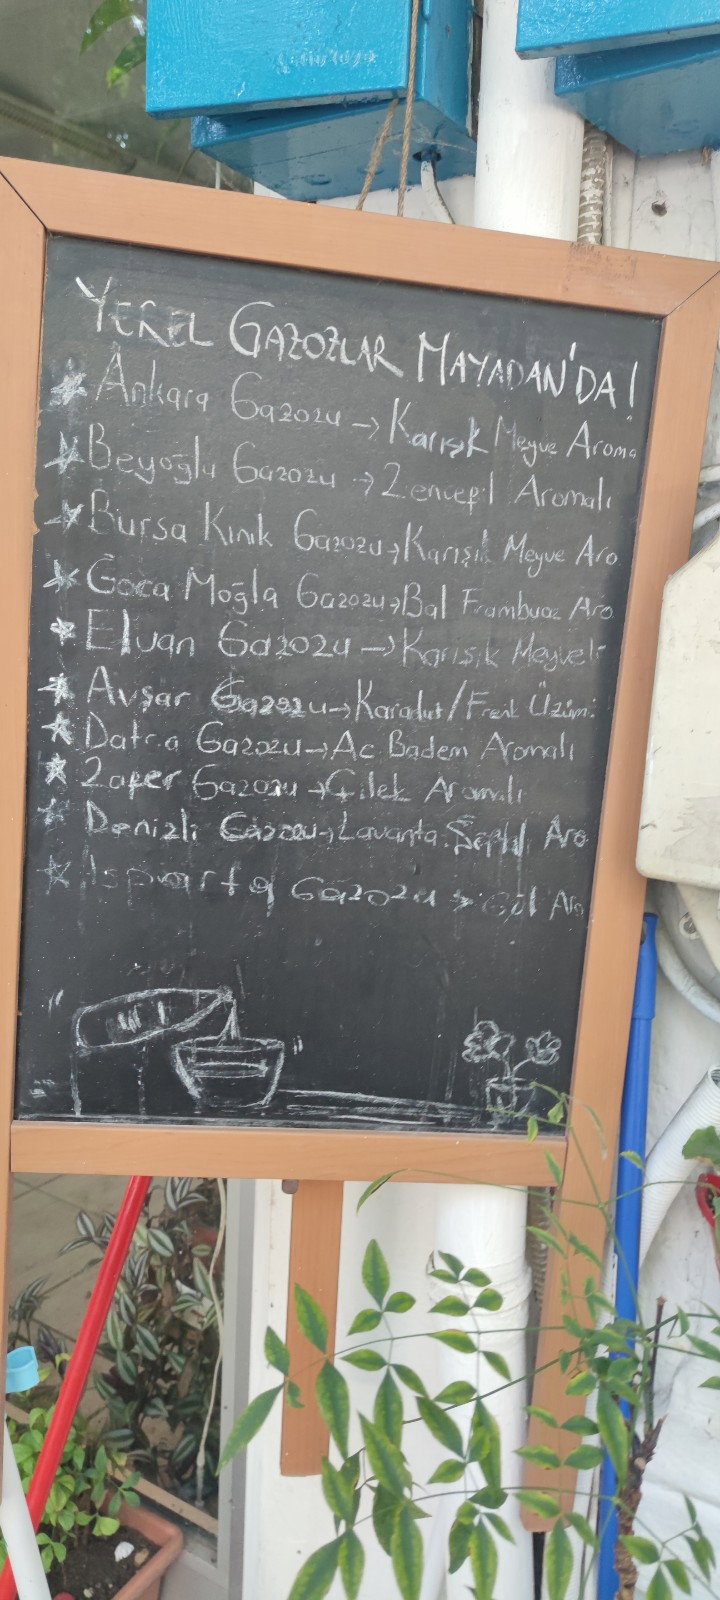 YEREL GAZOZLAR MAYADAN'DA!
Ankara Gazozu → Karışık Meyve Aroma
Beyoğlu Gazozu → Zencefil Aromalı
Bursa Kınık Gazozu → Karışık Meyve Aro
Goca Moğla Gazozu → Bal Frambuaz Aro
Elvan Gazozu → Karışık Meyveli
Avşar Gazozu → Karadut / Frenk Üzümü
Datça Gazozu → Ac Badem Aromalı
Zafer Gazozu → Çilek Aromalı
Denizli Gazozu → Lavanta Aro
Isparta Gazozu → Gül Aro